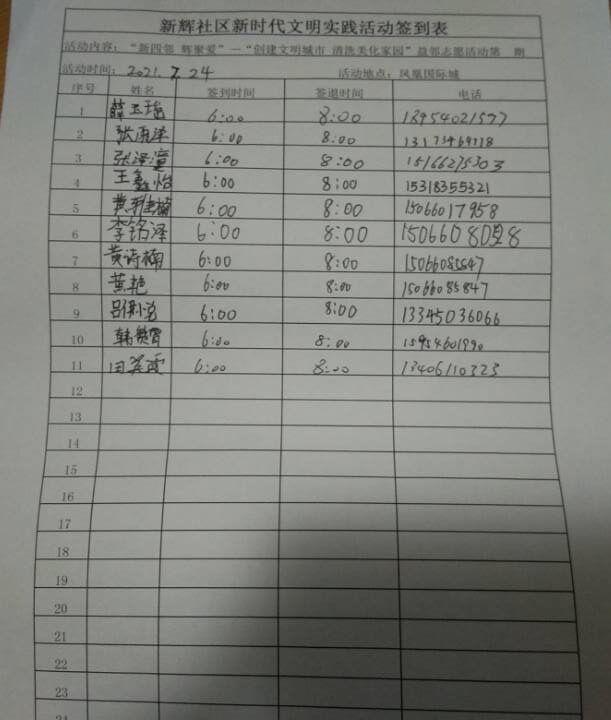 新辉社区新时代文明实践活动签到表
活动内容：“新四邻 辉聚爱”—“创建文明城市 清洗美化家园”益邻志愿活动第 期
活动时间：2021.7.24 活动地点：凤凰国际城
序号 姓名 签到时间 签退时间 电话
1 薛玉瑶 6:00 8:00
2 张雨泽 6:00 8:00
3 张泽 6:00 8:00 15166275303
4 王鑫怡 6:00 8:00 15318355321
5 黄 楠 6:00 8:00
6 李铭泽 6:00 8:00
7 黄诗楠 6:00 8:00
8 黄艳 6:00 8:00 15066085847
9 吕 6:00 8:00 13345036066
10 韩 6:00 8:00 15954601990
11 田 霞 6:00 8:00 13406110323
12
13
14
15
16
17
18
19
20
21
22
23
24